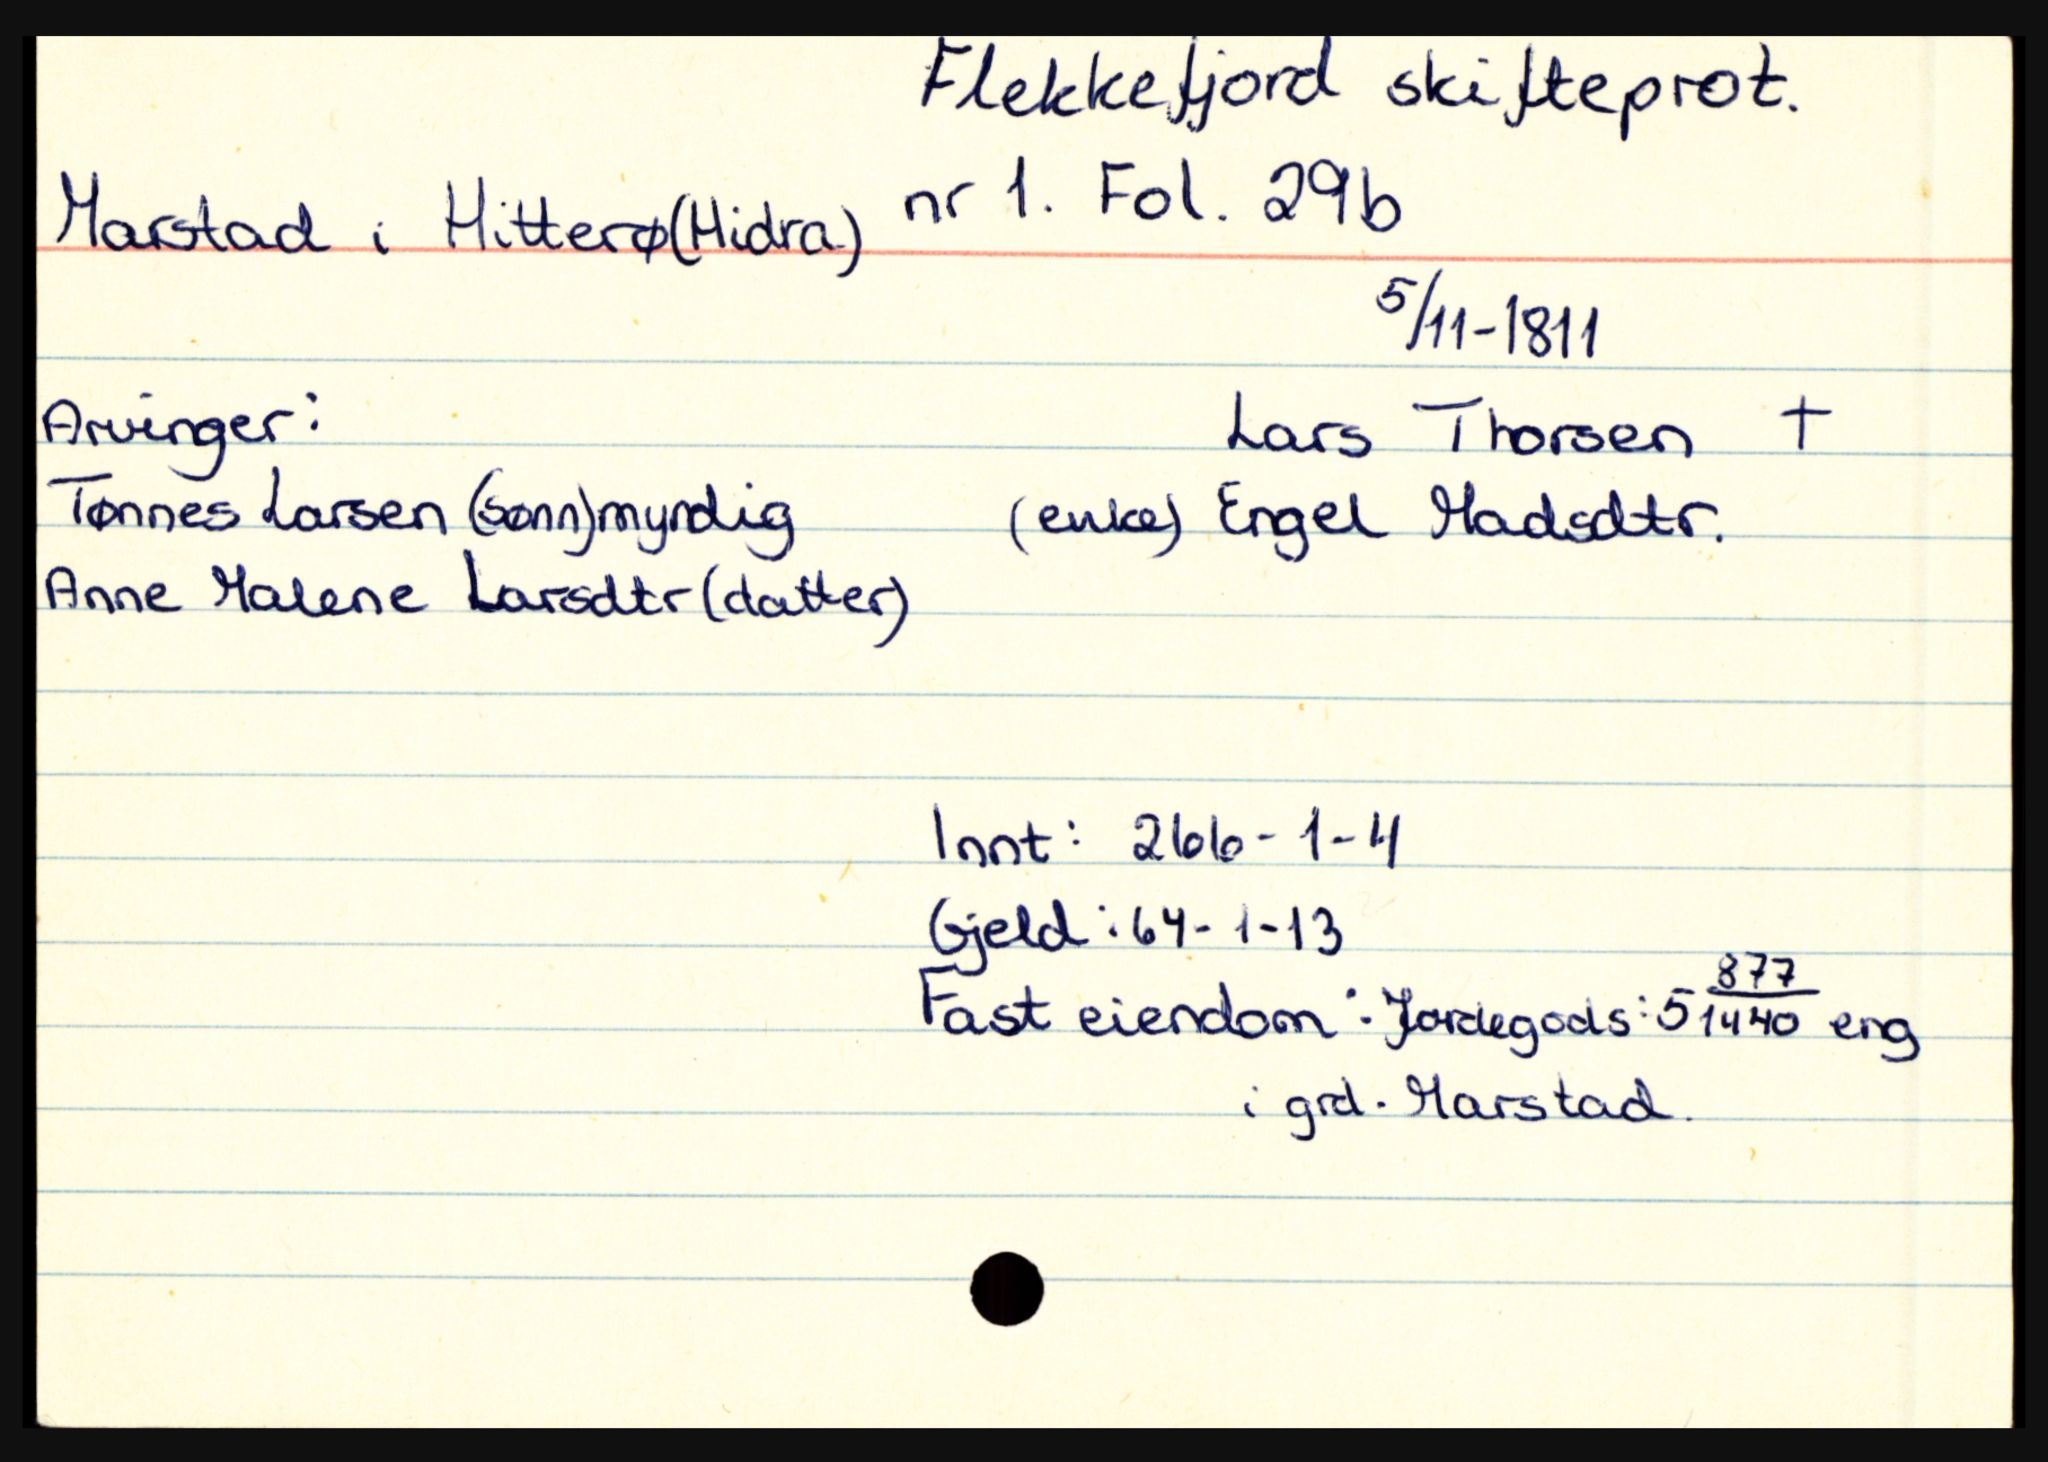 Flekkefjord skifteprot.
Marstad i Hitterø (Hidra) nr 1. Fol. 29b
5/11-1811
Arvinger: Lars Thorsen †
Tønnes Larsen (sønn) myndig (enke) Engel Madsdtr.
Anne Malene Larsdtr (datter)
Innt: 266-1-4
Gjeld: 64-1-13
Fast eiendom: Jordegods: 5 877/1440 eng
i grd. Marstad.